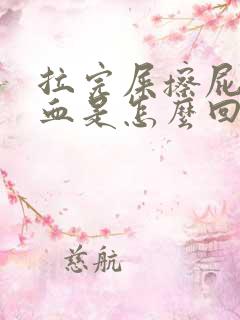 拉完屎擦屁
血是怎麼回
慈航